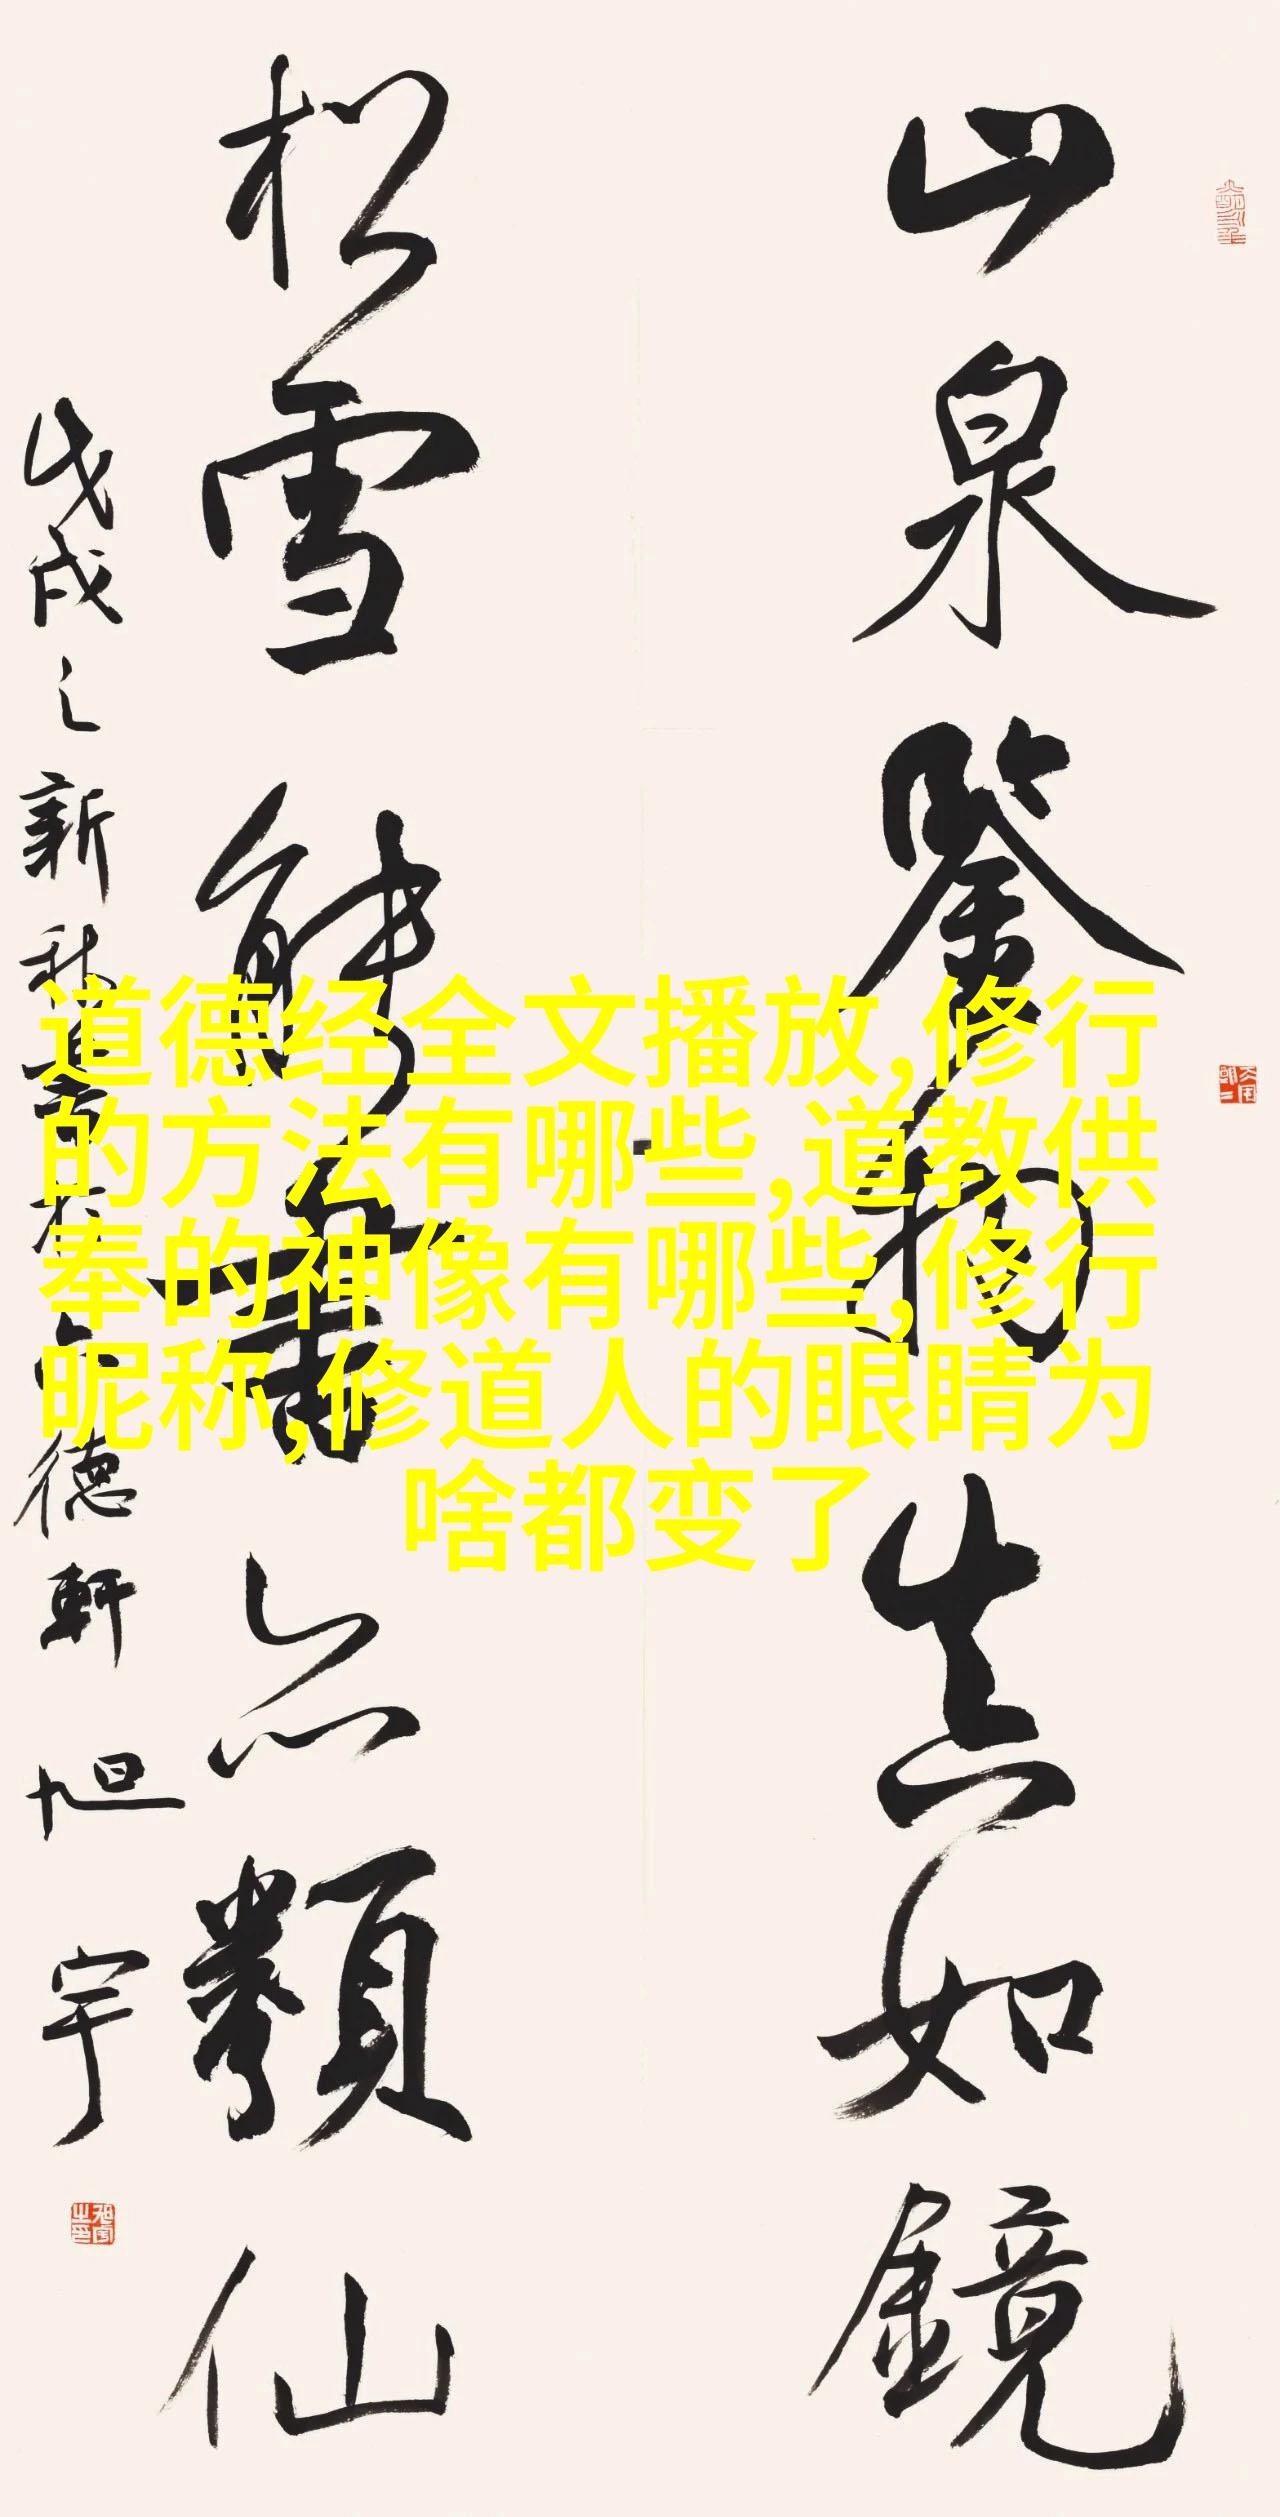 山泉鑒物真如鏡
松雪亦類仙
戊戌之新秋德軒旭宇
道德经全文播放,修行
的方法有哪些,道教供
奉的神像有哪些,修行
昵称,修道人的眼睛为
啥都变了